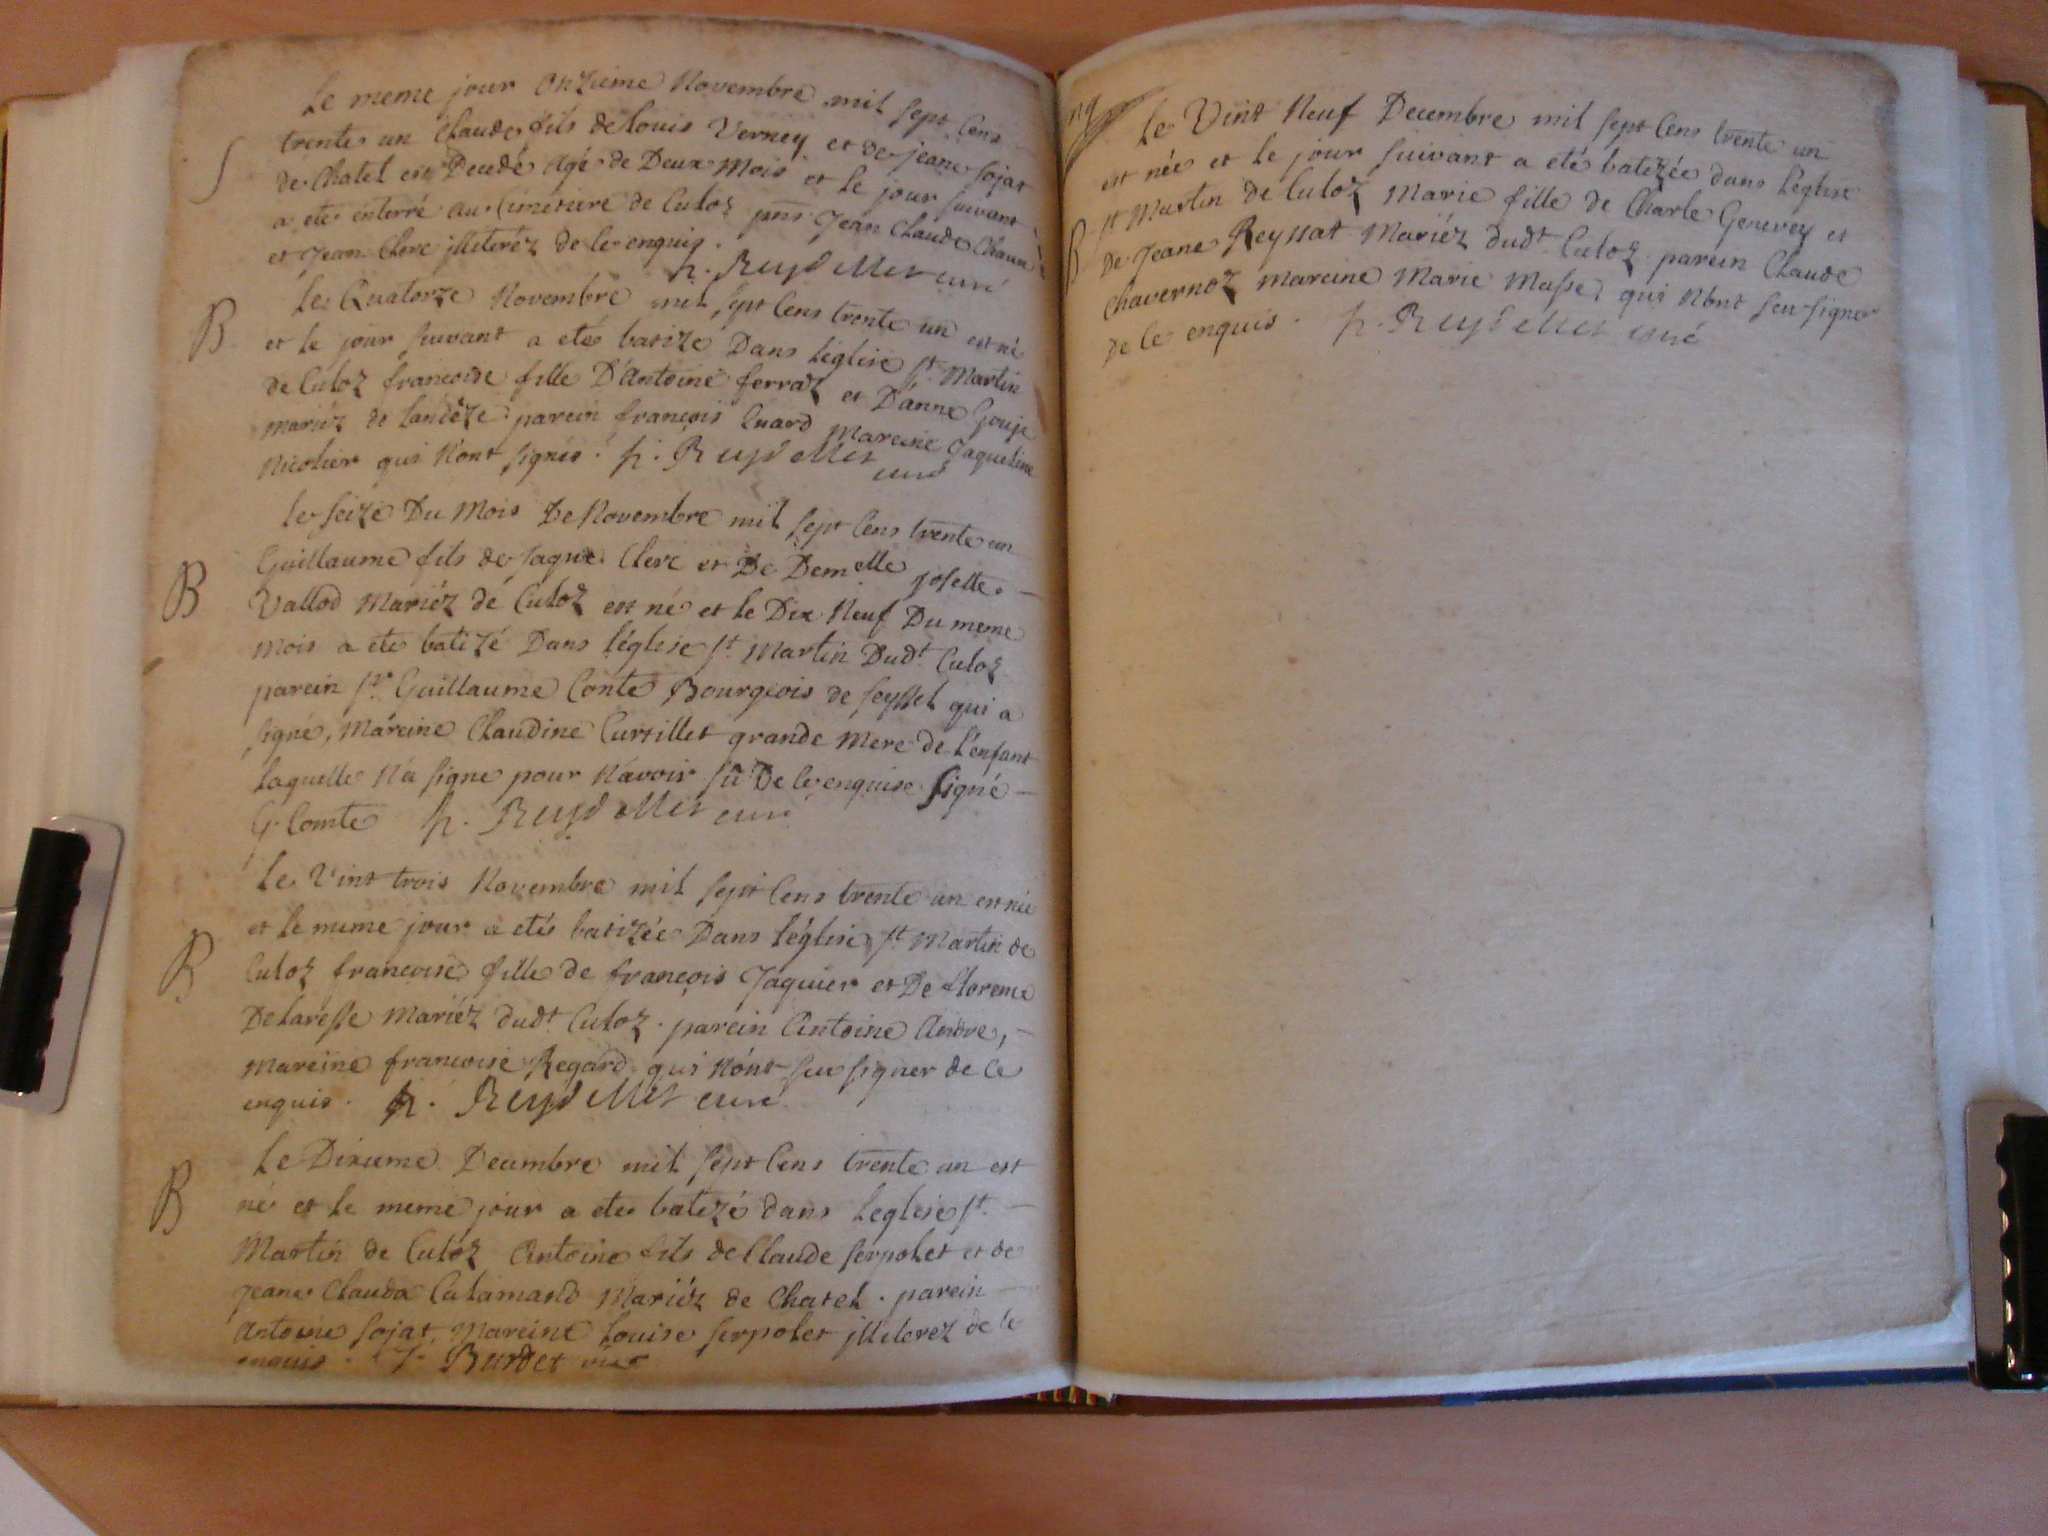 Le meme jour Onzieme Novembre mil sept Cens
trente un Claude fils de Louis Verney et de jeane Sojat
S
de Chatel est Decedé Agé de Deux Mois et le jour suivant
a ete enterré au Cimetiere de Culoz pns Jean Claude Chanu
et Jean Clerc illiterez de le enquis.
h. ReydeMet curé
Le Quatorze Novembre mil sept Cens trente un est né
B
et le jour suivant a eté batize Dans L'eglise St Martin
de Culoz francoise fille D'Antoine ferraz et D'anne Gouje
mariéz de Landéze parein françois Cuard mareine Jaqueline
Nicolier qui N'ont signés. h. ReydeMet
curé
le seize Du Mois De Novembre mil sept Cens trente un
Guillaume fils de Jaque Clerc et De Demelle josette
B
Vallod Mariéz de Culoz est né et le Dix Neuf Du meme
Mois a ete batizé Dans L'église St Martin Dudt Culoz
parein Sr Guillaume Conte Bourgeois de Seyssel qui a
signé, Mareine Claudine Curtillet grande Mere de L'enfant
Laquelle N'a signe pour N'avoir sû De le enquise signé
G. Comte h. ReydeMet curé
Le Vint trois Novembre mil sept Cens trente un est née
et le meme jour a eté batizée Dans L'église St Martin de
B
Culoz francoise fille de françois Jaquier et De florence
Delaresse Mariéz dudt Culoz. parein Antoine Andre,
Mareine francoise Regard qui N'ont seu signer de ce
enquis. h. ReydeMet curé
Le Dixieme Decembre mil sept Cens trente un est
B
né et le meme jour a ete batizé dans Leglise St
Martin de Culoz Antoine fils de Claude Serpolet et de
Jeane Clauda Calamand Mariéz de Chatel. parein
Antoine Sojat, Mareine Louise Serpolet illiterez de le
enquis. J. Burdet vic
Le Vint Neuf Decembre mil sept Cens trente un
est née et le jour suivant a eté batizée dans L'eglise
St Martin de Culoz Marie fille de Charle Genevéy et
B
De Jeane Reyssat Mariéz dudt Culoz parein Claude
Chavernoz mareine Marie Masse, qui N'ont seu signer
de le enquis. h. ReydeMet curé